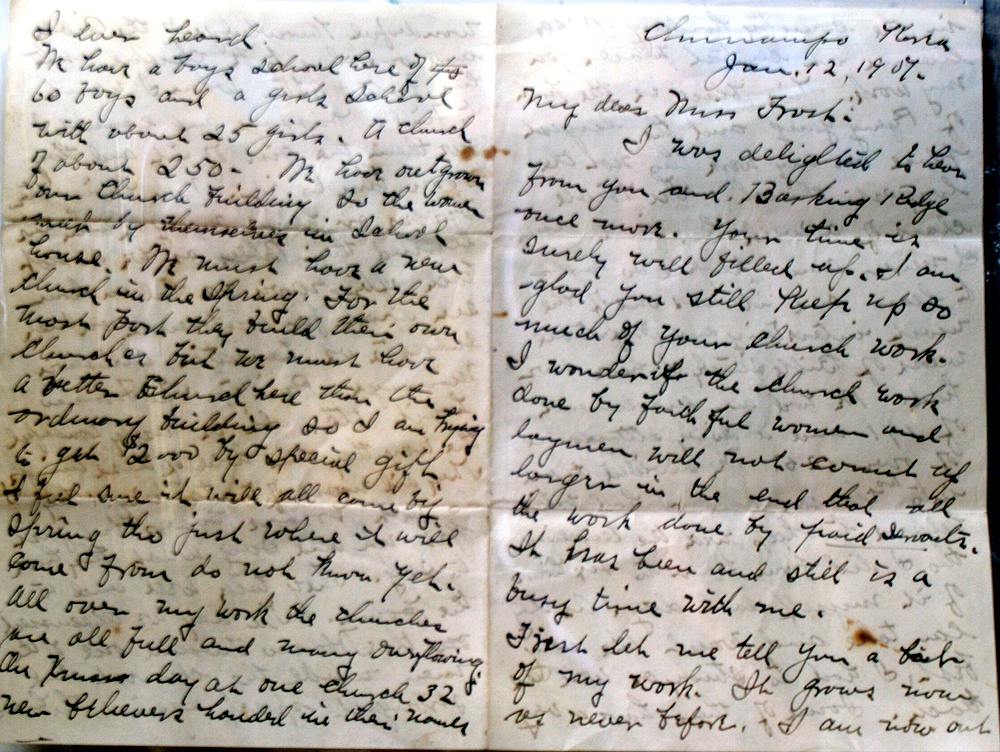 Chinnampo Korea
Jan. 12, 1907.
My dear Miss Frost:
I was delighted to hear
from you and Basking Ridge
once more. Your time is
surely well filled up. I am
glad you still keep up so
much of your church work.
I wonder if the church work
done by faithful women and
laymen will not count up
larger in the end that all
the work done by paid servants.
It has been and still is a
busy time with me.
First let me tell you a bit
of my work. It grows now
as never before. I am now out
I ever heard.
We have a boys school here of
60 boys and a girls school
with about 25 girls. A church
of about 250. We have outgrown
our church building so the women
meet by themselves in school
house. We must have a new
church in the spring. For the
most part they build their own
churches but we must have
a better church here than the
ordinary building so I am trying
to get $2000 by special gift
I feel sure it will all come by
spring tho just where it will
come from do not know yet.
All over my work the churches
are all full and many overflowing.
On Xmas day at one church 32
new believers handed in their names